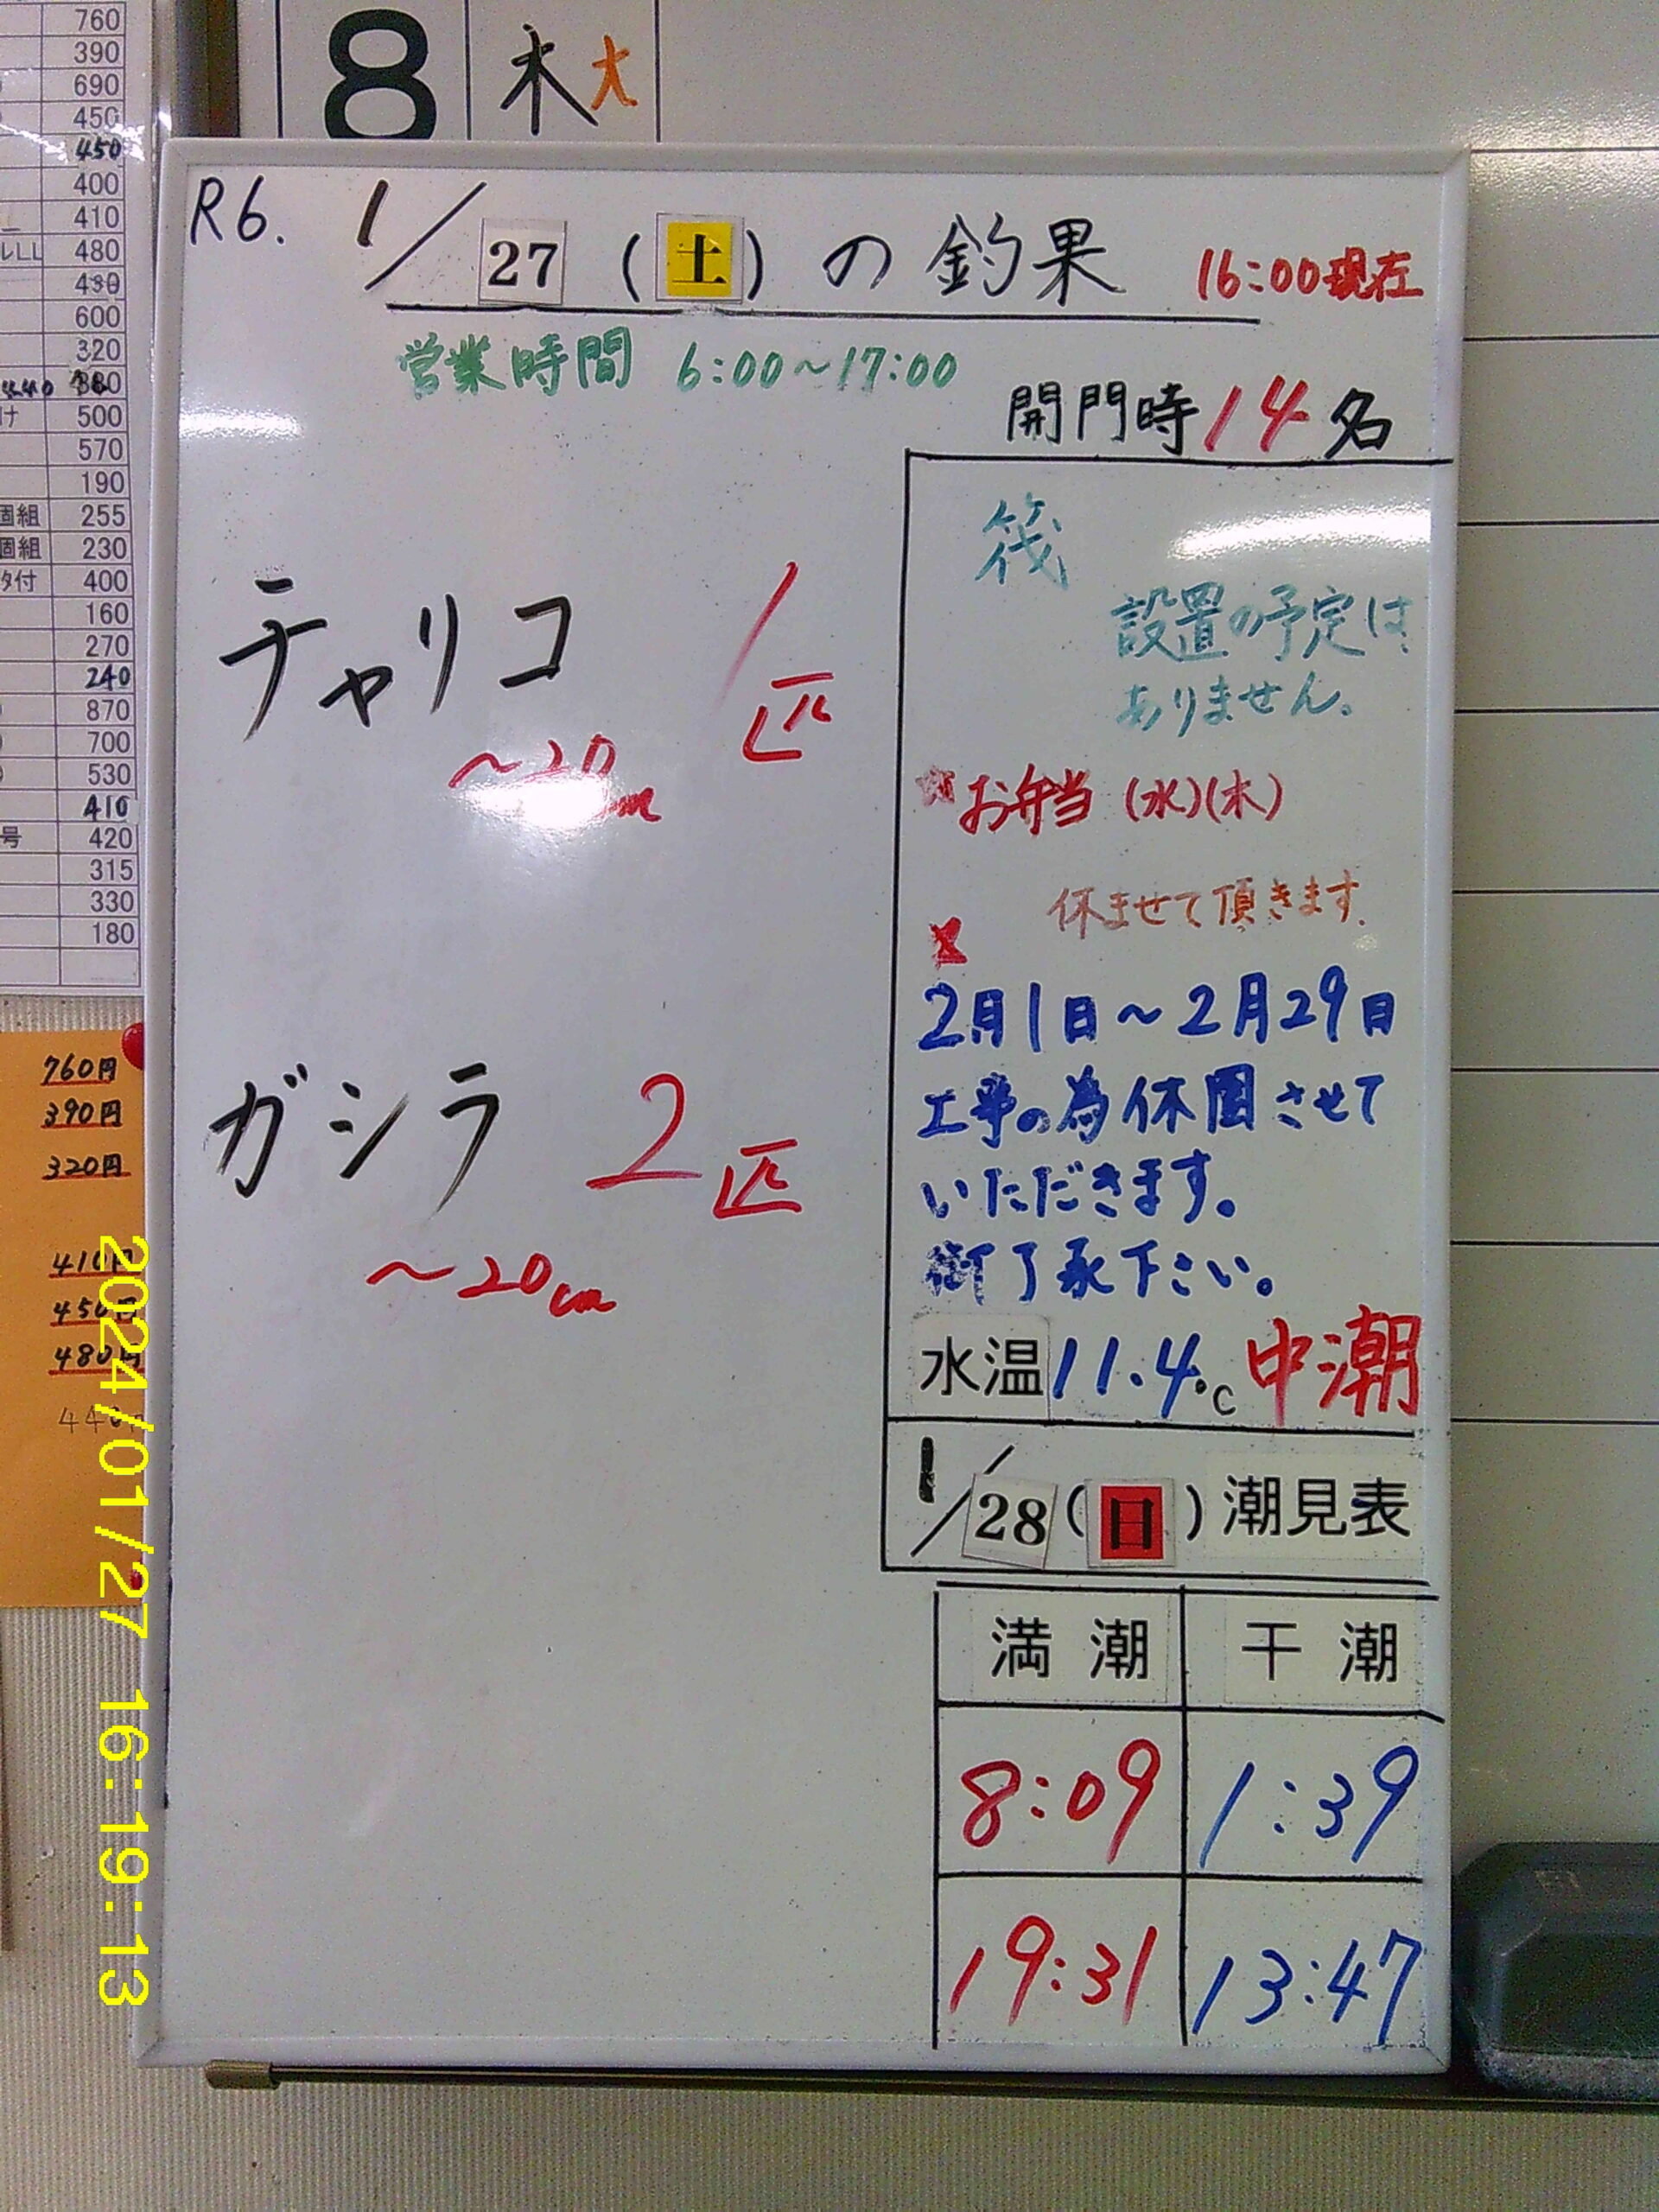 760
390
690
450
450
400
410
480
430
600
320
500
570
190
個組 255
個組 230
400
160
270
240
870
700
530
410
号 420
315
330
180
760円
390円
320円
410円
450円
480円
8 木 大
R6. 1/27 (土) の釣果 16:00現在
営業時間 6:00~17:00
開門時14名
チャリコ 1匹
~20cm
ガシラ 2匹
~20cm
筏
設置の予定は
ありません。
お弁当 (水)(木)
休ませて頂きます.
2月1日~2月29日
工事の為休園させて
いただきます。
御了承下さい。
水温 11.4℃ 中潮
1/28 (日) 潮見表
満潮 干潮
8:09 1:39
19:31 13:47
2024/01/27 16:19:13